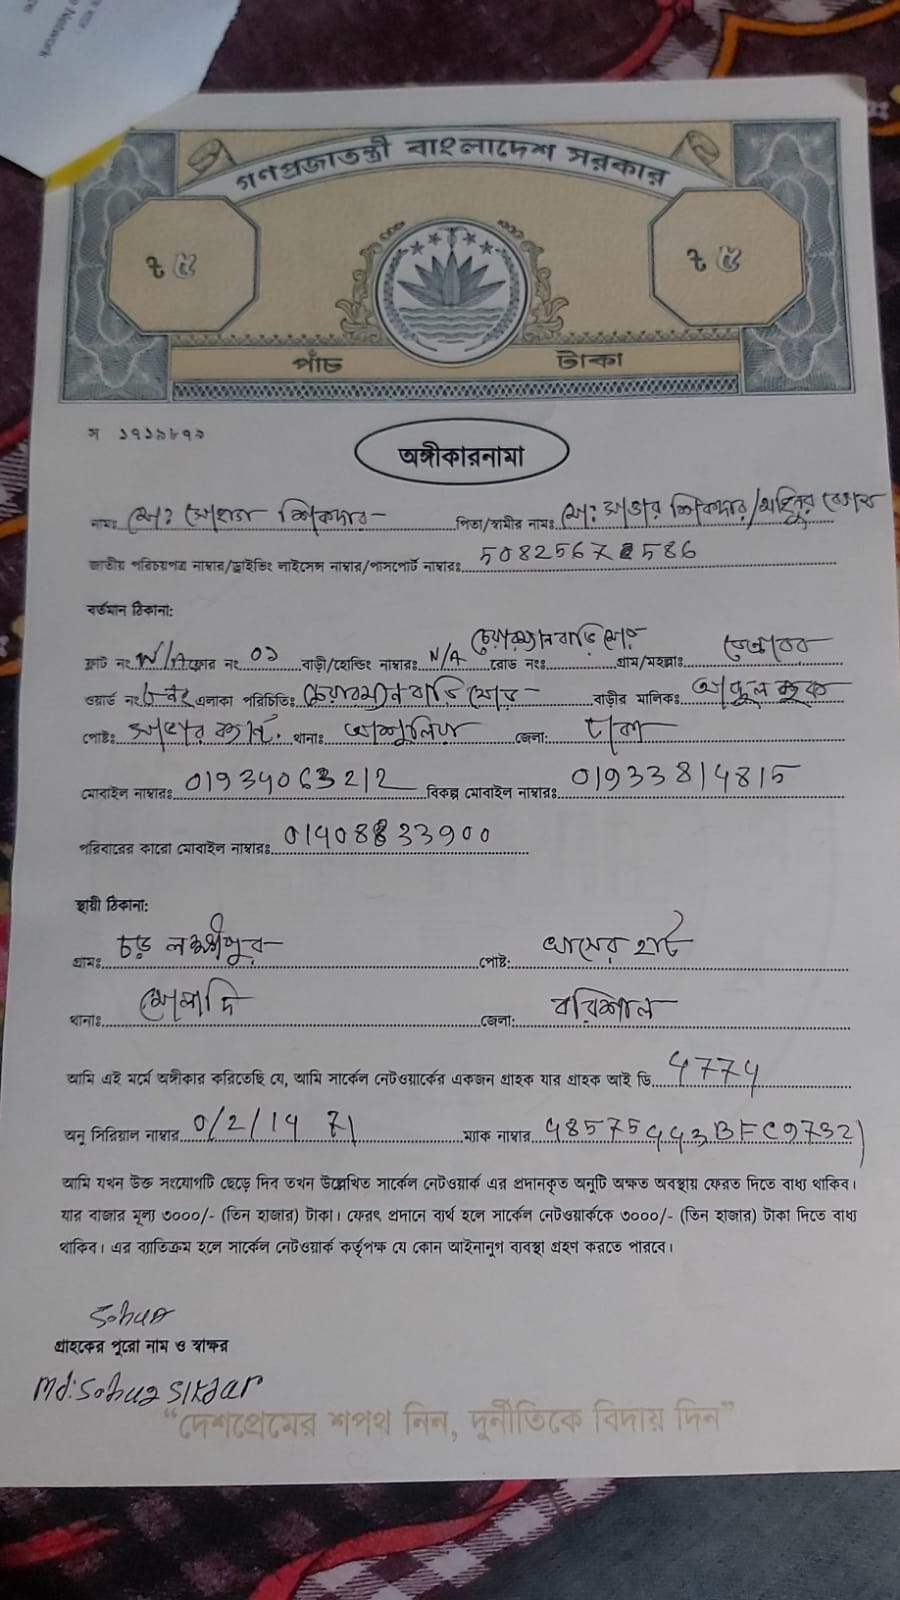 Network
গণপ্রজাতন্ত্রী বাংলাদেশ সরকার
৳ ৫ ৳ ৫
পাঁচ টাকা
স ১৭১৯৮৭৯
অঙ্গীকারনামা
নামঃ মোঃ সোহাগ শিকদার পিতা/স্বামীর নামঃ মোঃ সাত্তার শিকদার/
জাতীয় পরিচয়পত্র নাম্বার/ড্রাইভিং লাইসেন্স নাম্বার/পাসপোর্ট নাম্বারঃ 5082567 586
বর্তমান ঠিকানা:
চেয়ারম্যান বাড়ি মোড়
ফ্লাট নং N/A ফ্লোর নং ০১ বাড়ী/হোল্ডিং নাম্বারঃ N/A রোড নংঃ গ্রাম/মহল্লাঃ
ওয়ার্ড নংঃ এলাকা পরিচিতিঃ চেয়ারম্যান বাড়ি মোড় বাড়ীর মালিকঃ
পোষ্টঃ থানাঃ আশুলিয়া জেলা: ঢাকা
মোবাইল নাম্বারঃ 01934063212 বিকল্প মোবাইল নাম্বারঃ 01933814815
পরিবারের কারো মোবাইল নাম্বারঃ
স্থায়ী ঠিকানা:
গ্রামঃ চড় লক্ষীপুর পোষ্ট: খাসের হাট
থানাঃ মোলাদি জেলা: বরিশাল
আমি এই মর্মে অঙ্গীকার করিতেছি যে, আমি সার্কেল নেটওয়ার্কের একজন গ্রাহক যার গ্রাহক আই ডি 4774
অনু সিরিয়াল নাম্বার ম্যাক নাম্বার
আমি যখন উক্ত সংযোগটি ছেড়ে দিব তখন উল্লেখিত সার্কেল নেটওয়ার্ক এর প্রদানকৃত অনুটি অক্ষত অবস্থায় ফেরত দিতে বাধ্য থাকিব।
যার বাজার মূল্য ৩০০০/- (তিন হাজার) টাকা। ফেরৎ প্রদানে ব্যর্থ হলে সার্কেল নেটওয়ার্ককে ৩০০০/- (তিন হাজার) টাকা দিতে বাধ্য
থাকিব। এর ব্যাতিক্রম হলে সার্কেল নেটওয়ার্ক কর্তৃপক্ষ যে কোন আইনানুগ ব্যবস্থা গ্রহণ করতে পারবে।
গ্রাহকের পুরো নাম ও স্বাক্ষর
Md: Sohag Sikdar
“দেশপ্রেমের শপথ নিন, দুর্নীতিকে বিদায় দিন”